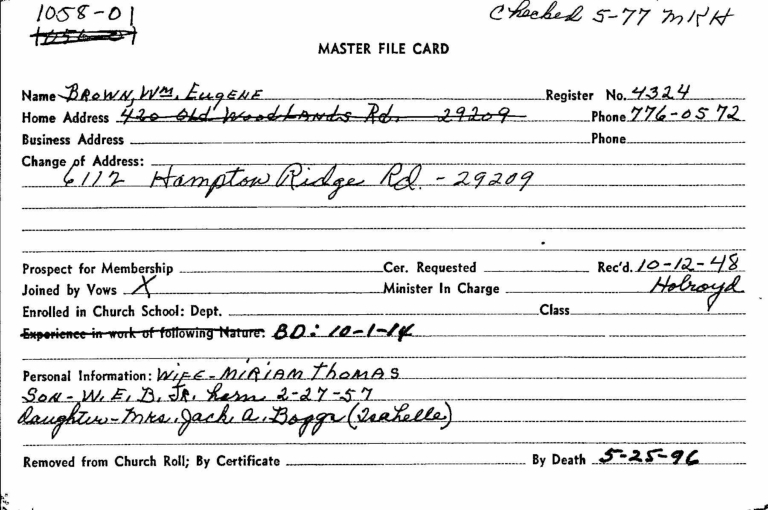 1058-01
1056-01
Checked 5-77 MKH
MASTER FILE CARD
Name BROWN, WM. EUGENE Register No. 4324
Home Address 420 Old Woodlands Rd. 29209 Phone 776-0572
Business Address Phone
Change of Address:
6112 Hampton Ridge Rd. - 29209
Prospect for Membership Cer. Requested Rec'd. 10-12-48
Joined by Vows X Minister In Charge Holroyd
Enrolled in Church School: Dept. Class
Experience in work of following Nature: BD: 10-1-14
Personal Information: WIFE - MIRIAM THOMAS
SON - W. E. B. JR. born 2-27-57
Daughter - Mrs. Jack A. Boggs (Isabelle)
Removed from Church Roll; By Certificate By Death 5-25-96